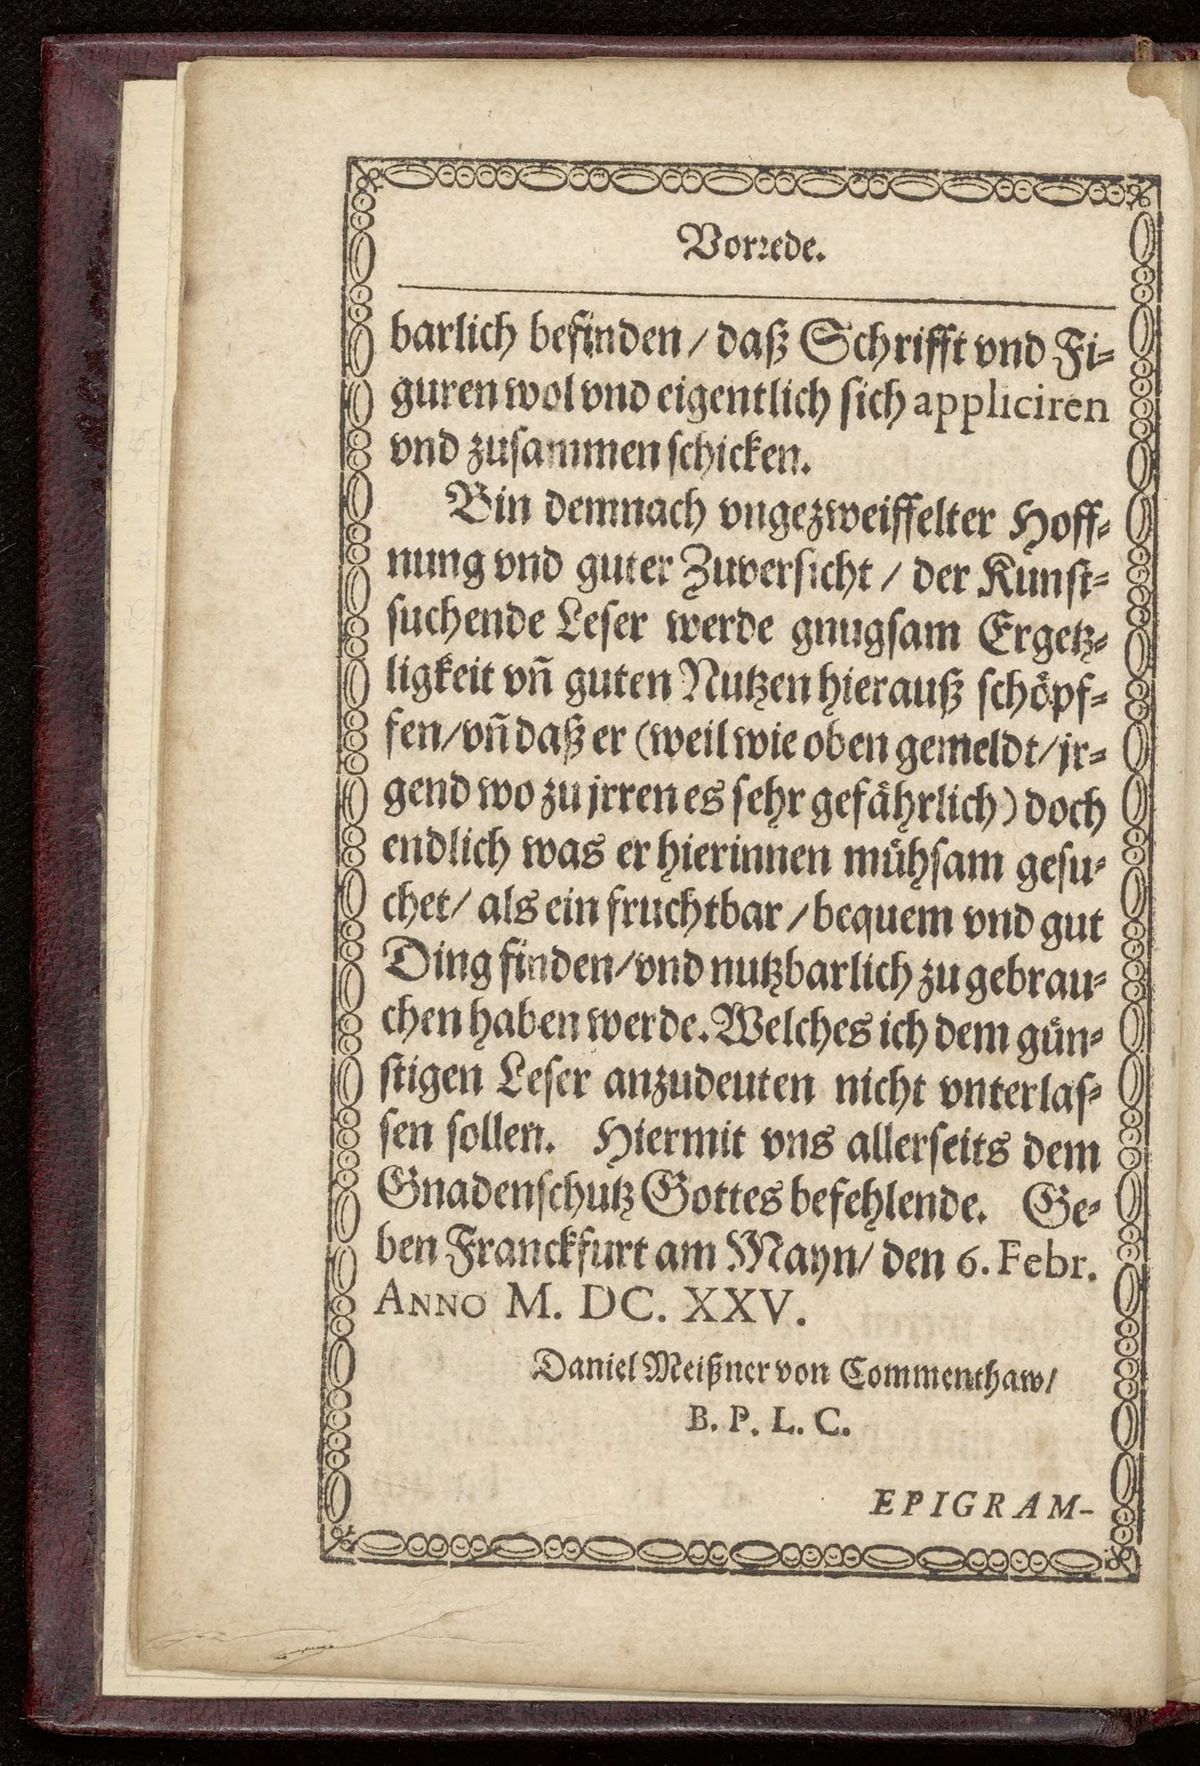 Vorrede.
barlich befinden / daß Schrifft vnd Fi-
guren wol vnd eigentlich sich appliciren
vnd zusammen schicken.
Bin demnach vngezweiffelter Hoff-
nung vnd guter Zuversicht / der Kunst-
suchende Leser werde gnugsam Ergetz-
ligkeit vñ guten Nutzen hierauß schöpf-
fen / vñ daß er (weil wie oben gemeldt / jr-
gend wo zu jrren es sehr gefährlich) doch
endlich was er hierinnen mühsam gesu-
chet / als ein fruchtbar / bequem vnd gut
Ding finden / vnd nutzbarlich zu gebrau-
chen haben werde. Welches ich dem gün-
stigen Leser anzudeuten nicht vnterlas-
sen sollen. Hiermit vns allerseits dem
Gnadenschutz Gottes befehlende. Ge-
ben Franckfurt am Mayn / den 6. Febr.
ANNO M. DC. XXV.
Daniel Meißner von Commenthaw /
B. P. L. C.
EPIGRAM-